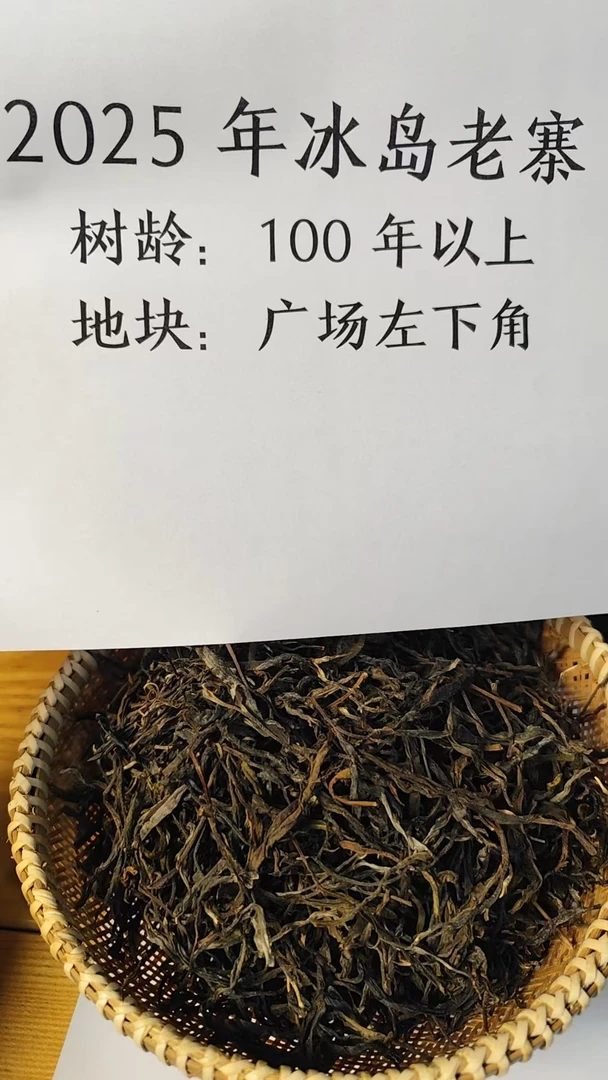 2025 年冰岛老寨
树龄： 100 年以上
地块： 广场左下角